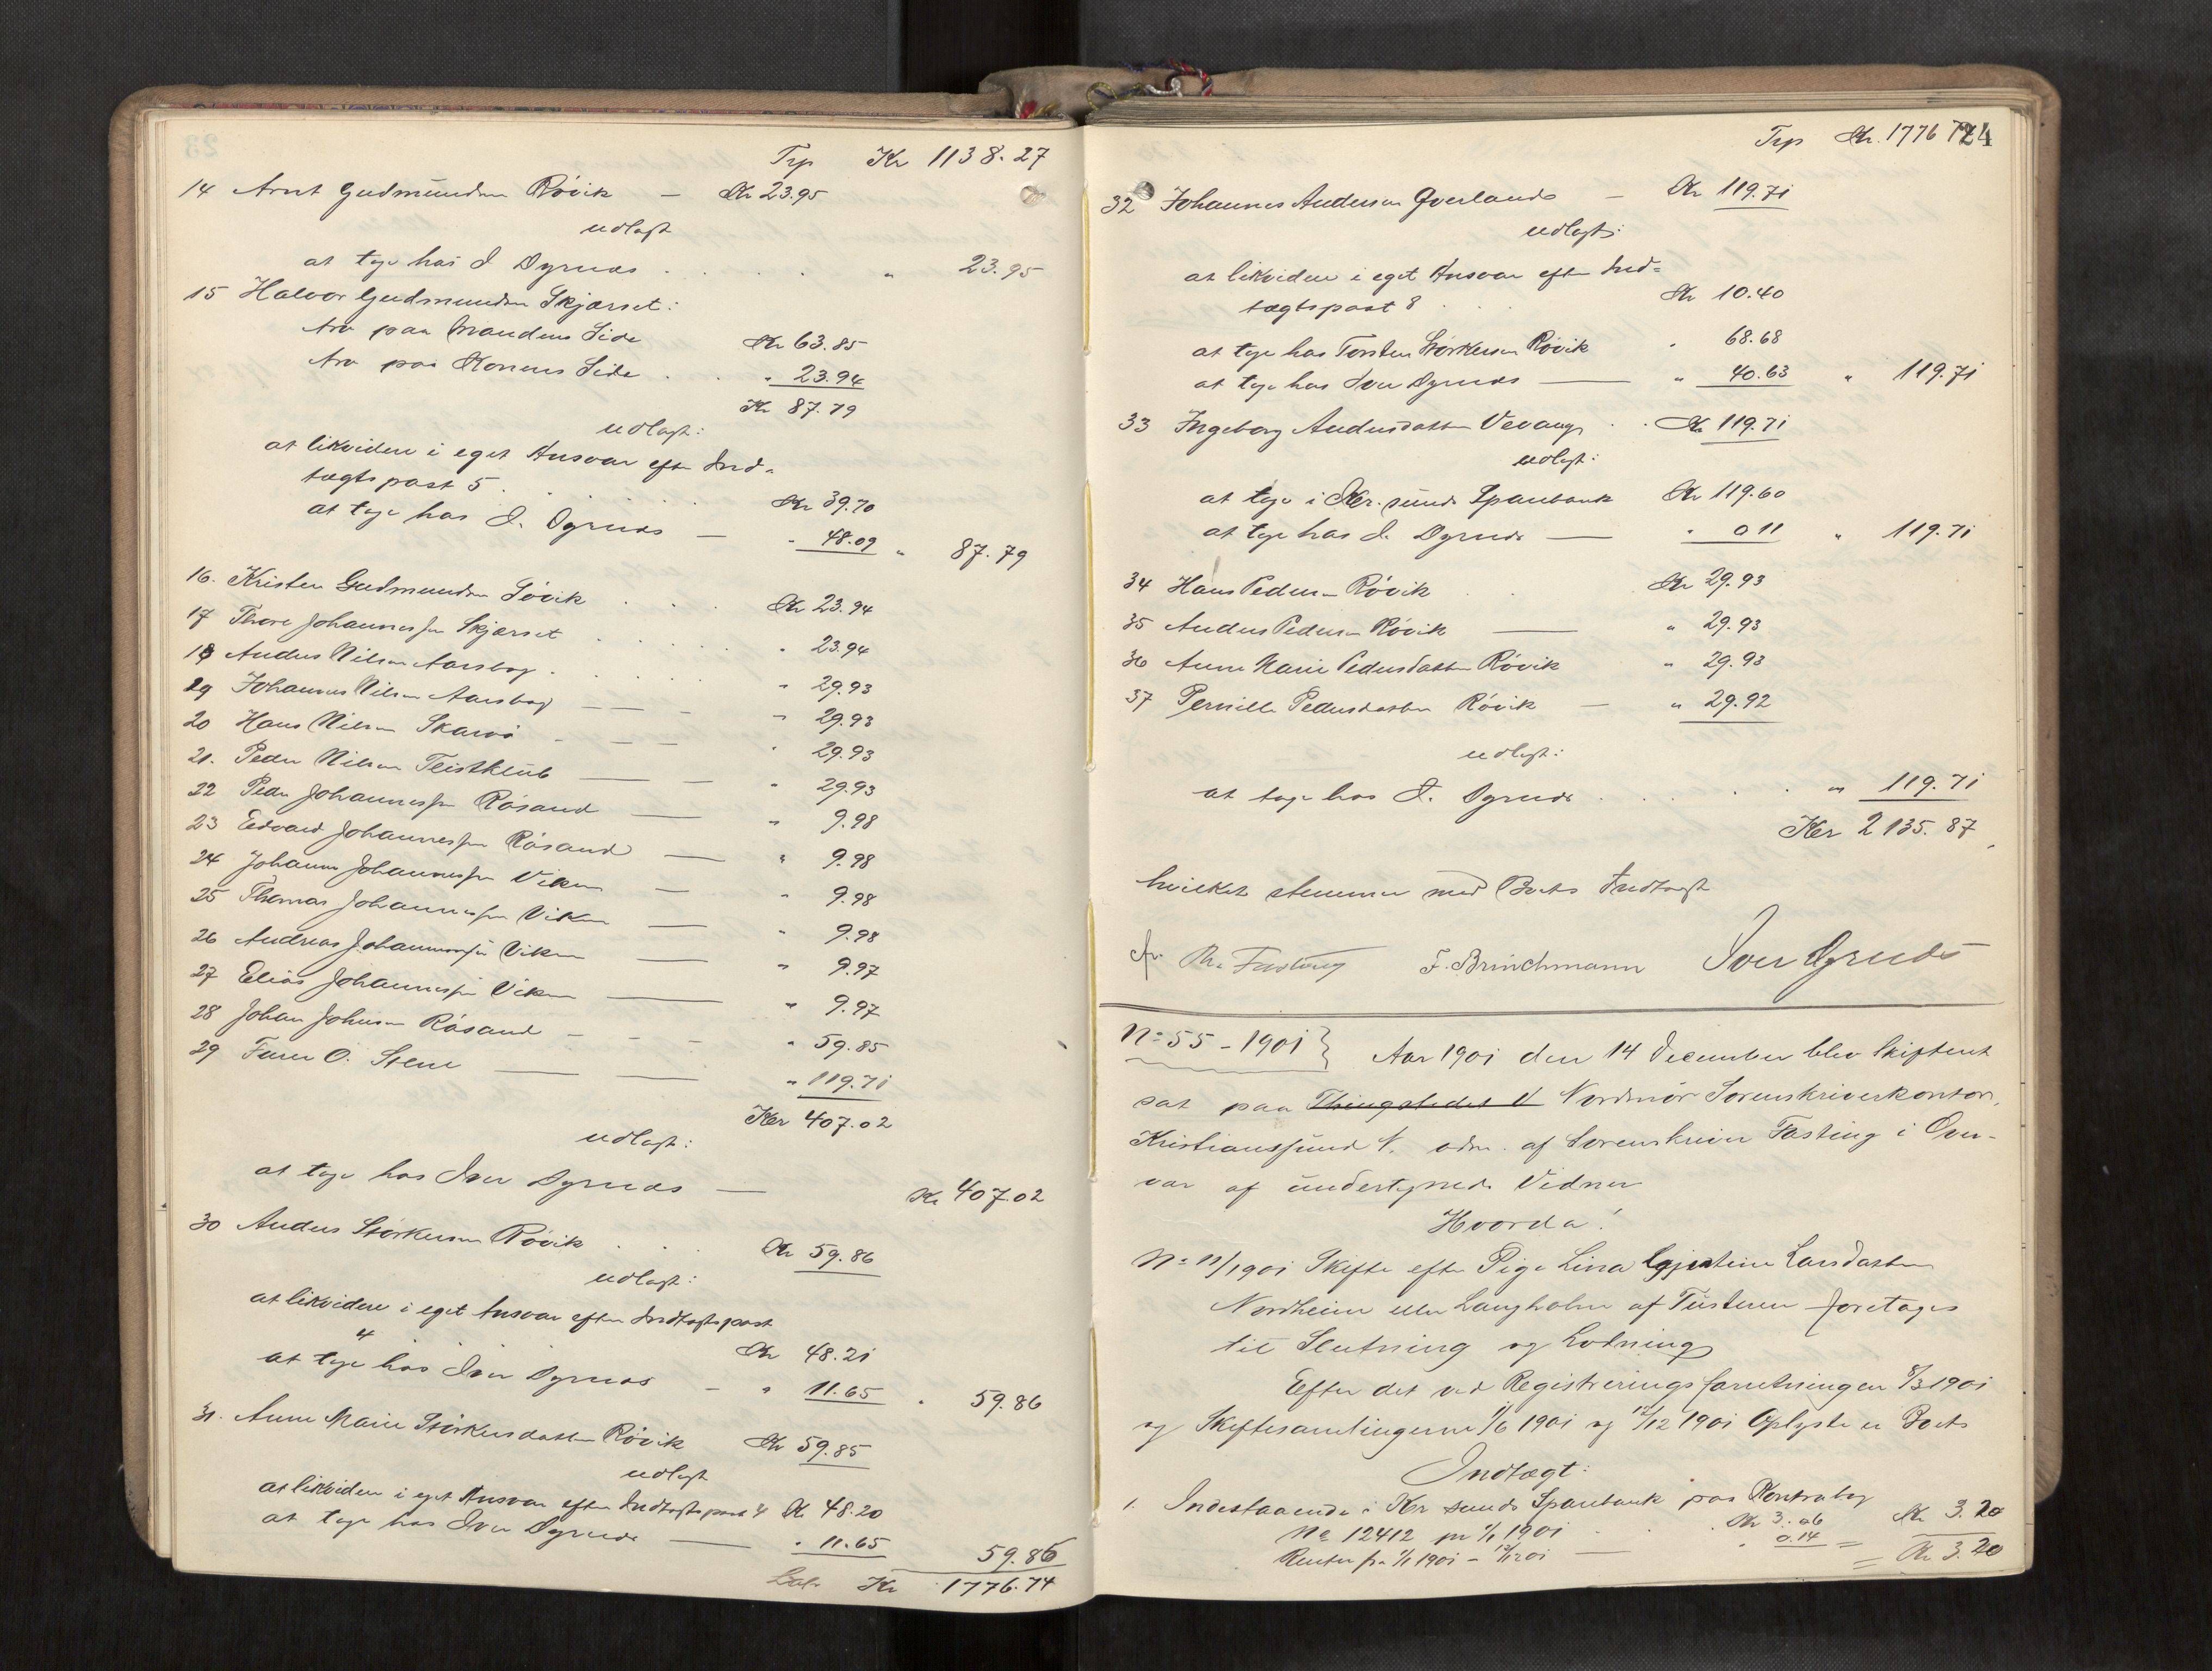 Trp Kr 1138.27
14 Arnt Gudmundsen Røvik — Kr 23.95
udlagt
at tage hos I. Dyrnes . . . " 23.95
15 Halvor Gudmundsen Skjærset:
Arv paa Mandens Side Kr 63.85
Arv paa Konens Side . . " 23.94
Kr 87.79
udlagt:
at likvidere i eget Ansvar efter Ind-
tægtspost 5 . . . Kr 39.70
at tage hos I. Dyrnes — " 48.09 " 87.79
16. Kristen Gudmundsen Søvik . . . Kr 23.94
17 Thore Johannessen Skjærset . . . " 23.94
18 Anders Nilsen Aarsbog . . . " 29.93
19 Johannes Nilsen Aarsbog — — — " 29.93
20 Hans Nilsen Skarvø - — — " 29.93
21. Peder Nilsen Teistklub — — " 29.93
22 Peder Johannessen Røsand — " 9.98
23 Edvard Johannessen Røsand — " 9.98
24 Johannes Johannessen Viken — " 9.98
25 Thomas Johannessen Viken — " 9.98
26 Andreas Johannessen Viken — " 9.97
27 Elias Johannessen Viken — " 9.97
28 Johan Johnsen Røsand - - - " 59.85
29 Furer O. Stene — — " 119.71
Kr 407.02
udlagt:
at tage hos Iver Dyrnes — Kr 407.02
30 Anders Størkersen Røvik . . . Kr 59.86
udlagt:
at likvidere i eget Ansvar efter Indtægtspost
4 Kr 48.21
at tage hos Iver Dyrnes - " 11.65 " 59.86
31. Anne Marie Størkersdatter Røvik Kr 59.85
udlagt
at likvidere i eget Ansvar efter Indtægtspost 4 Kr 48.20
at tage hos Iver Dyrnes — " 11.65 59.86
Lab. Kr 1776.74
24
Trp Kr. 1776 74
32 Johannes Andersen Qverlands — Kr 119.71
udlagt:
at likvidere i eget Ansvar efter Ind-
tægtspost 8 . . Kr 10.40
at tage hos Torsten Størkersen Røvik " 68.68
at tage hos Iver Dyrnes — " 40.63 " 119.71
33 Ingeborg Andersdatter Vevang . . Kr 119.71
udlagt:
at tage i Kr.sunds Sparebank Kr 119.60
at tage hos I. Dyrnes — " 0 11 " 119.71
34 Hans Pedersen Røvik . . Kr 29.93
35 Anders Pedersen Røvik — " 29.93
36 Anne Marie Pedersdatter Røvik " 29.93
37 Pernille Pedersdatter Røvik — " 29.92
udlagt:
at tage hos I. Dyrnes . . . " 119.71
Kr 2135.87
hvilket stemmer med Boets Indtægt
Th. Fasting F. Brinchmann Iver Dyrnes
No 55 - 1901 } Aar 1901 den 14 December blev Skifteret
sat paa Thingstedet V Nordmør Sorenskriverkontor,
Kristianssund N. adm. af Sorenskriver Fasting i Over-
vær af undertegnede Vidner
Hvorda!
No 11/1901 Skifte efter Pige Lina Gjertine Larsdatter
Nordheim eller Langholm af Tusteren foretages
til Slutning og Lodning
Efter det ved Registreringsforretningen 8/3 1901
og Skiftesamlingerne 1/6 1901 og 12/12 1901 Oplyste er Boets
Indtægt:
1. Indestaaende i Kr sunds Sparebank paa Kontrabog
No 12412 pr 1/1 1901 . . Kr 3.06
Renter fra 1/1 1901 - 12/12 01 — " 0.14 = Kr 3.20
= Kr 3.20